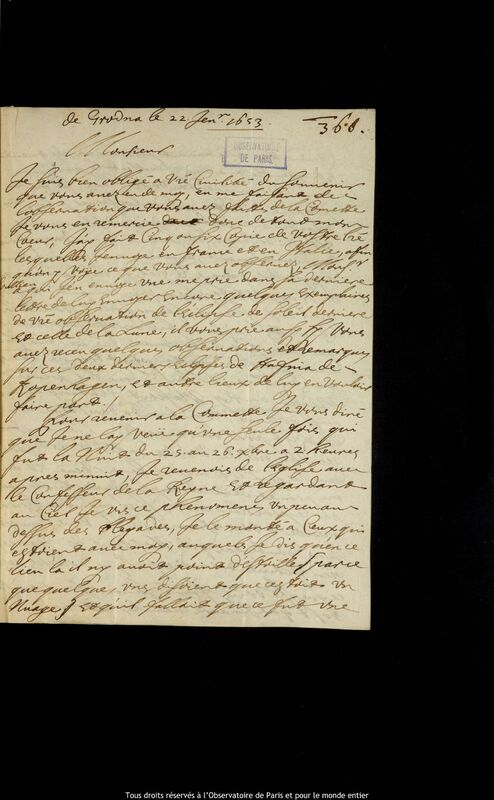 de Grodna le 22 Jenr. 1653
366.
Monsieur
OBSERVATOIRE
DE PARIS
Je suis bien obligé a vre Civilité du souvenir
que vous avez eu de moy, en me faisant
l'observation que vous avez faite de la Comette
Je vous en remercie donc de tout mon
Coeur, J'ay fait Cinq ou six Copie de vostre lre
lesquelles J'envoye en france et en Italie, affin
qu'on y voye ce que vous avez observez,
J'en envoye une me prie dans sa derniere
lettre de luy envoyer encore quelques exemplaires
de vre observation de l'eclipse de soleil derniere
et celle de la Lune, il vous prie aussy sy vous
avez receu quelques observations et remarques
sur ces deux derniers eclipses de
Kopenhagen, et autre lieux de luy en vouloir
faire part.
Pour revenir a la Comette Je vous diré
que Je ne l'ay veüe qu'une seule fois qui
fut la Nuit du 25 au 26. xbre a 2 heures
apres minuit, Je revenois de l'eglise avec
le Confesseur de la Reyne et regardant
au Ciel Je vis ce phenomene un peu au
dessus des Pleyades, Je le monté a Ceux qui
estoient avec moy, auquels Je dis qu'en ce
lieu la il ny avoit point d'estoille (parce
que quelques uns disoient que c'estoit un
Nuage) et qu'il falloit que ce fut une
Tous droits réservés à l'Observatoire de Paris et pour le monde entier